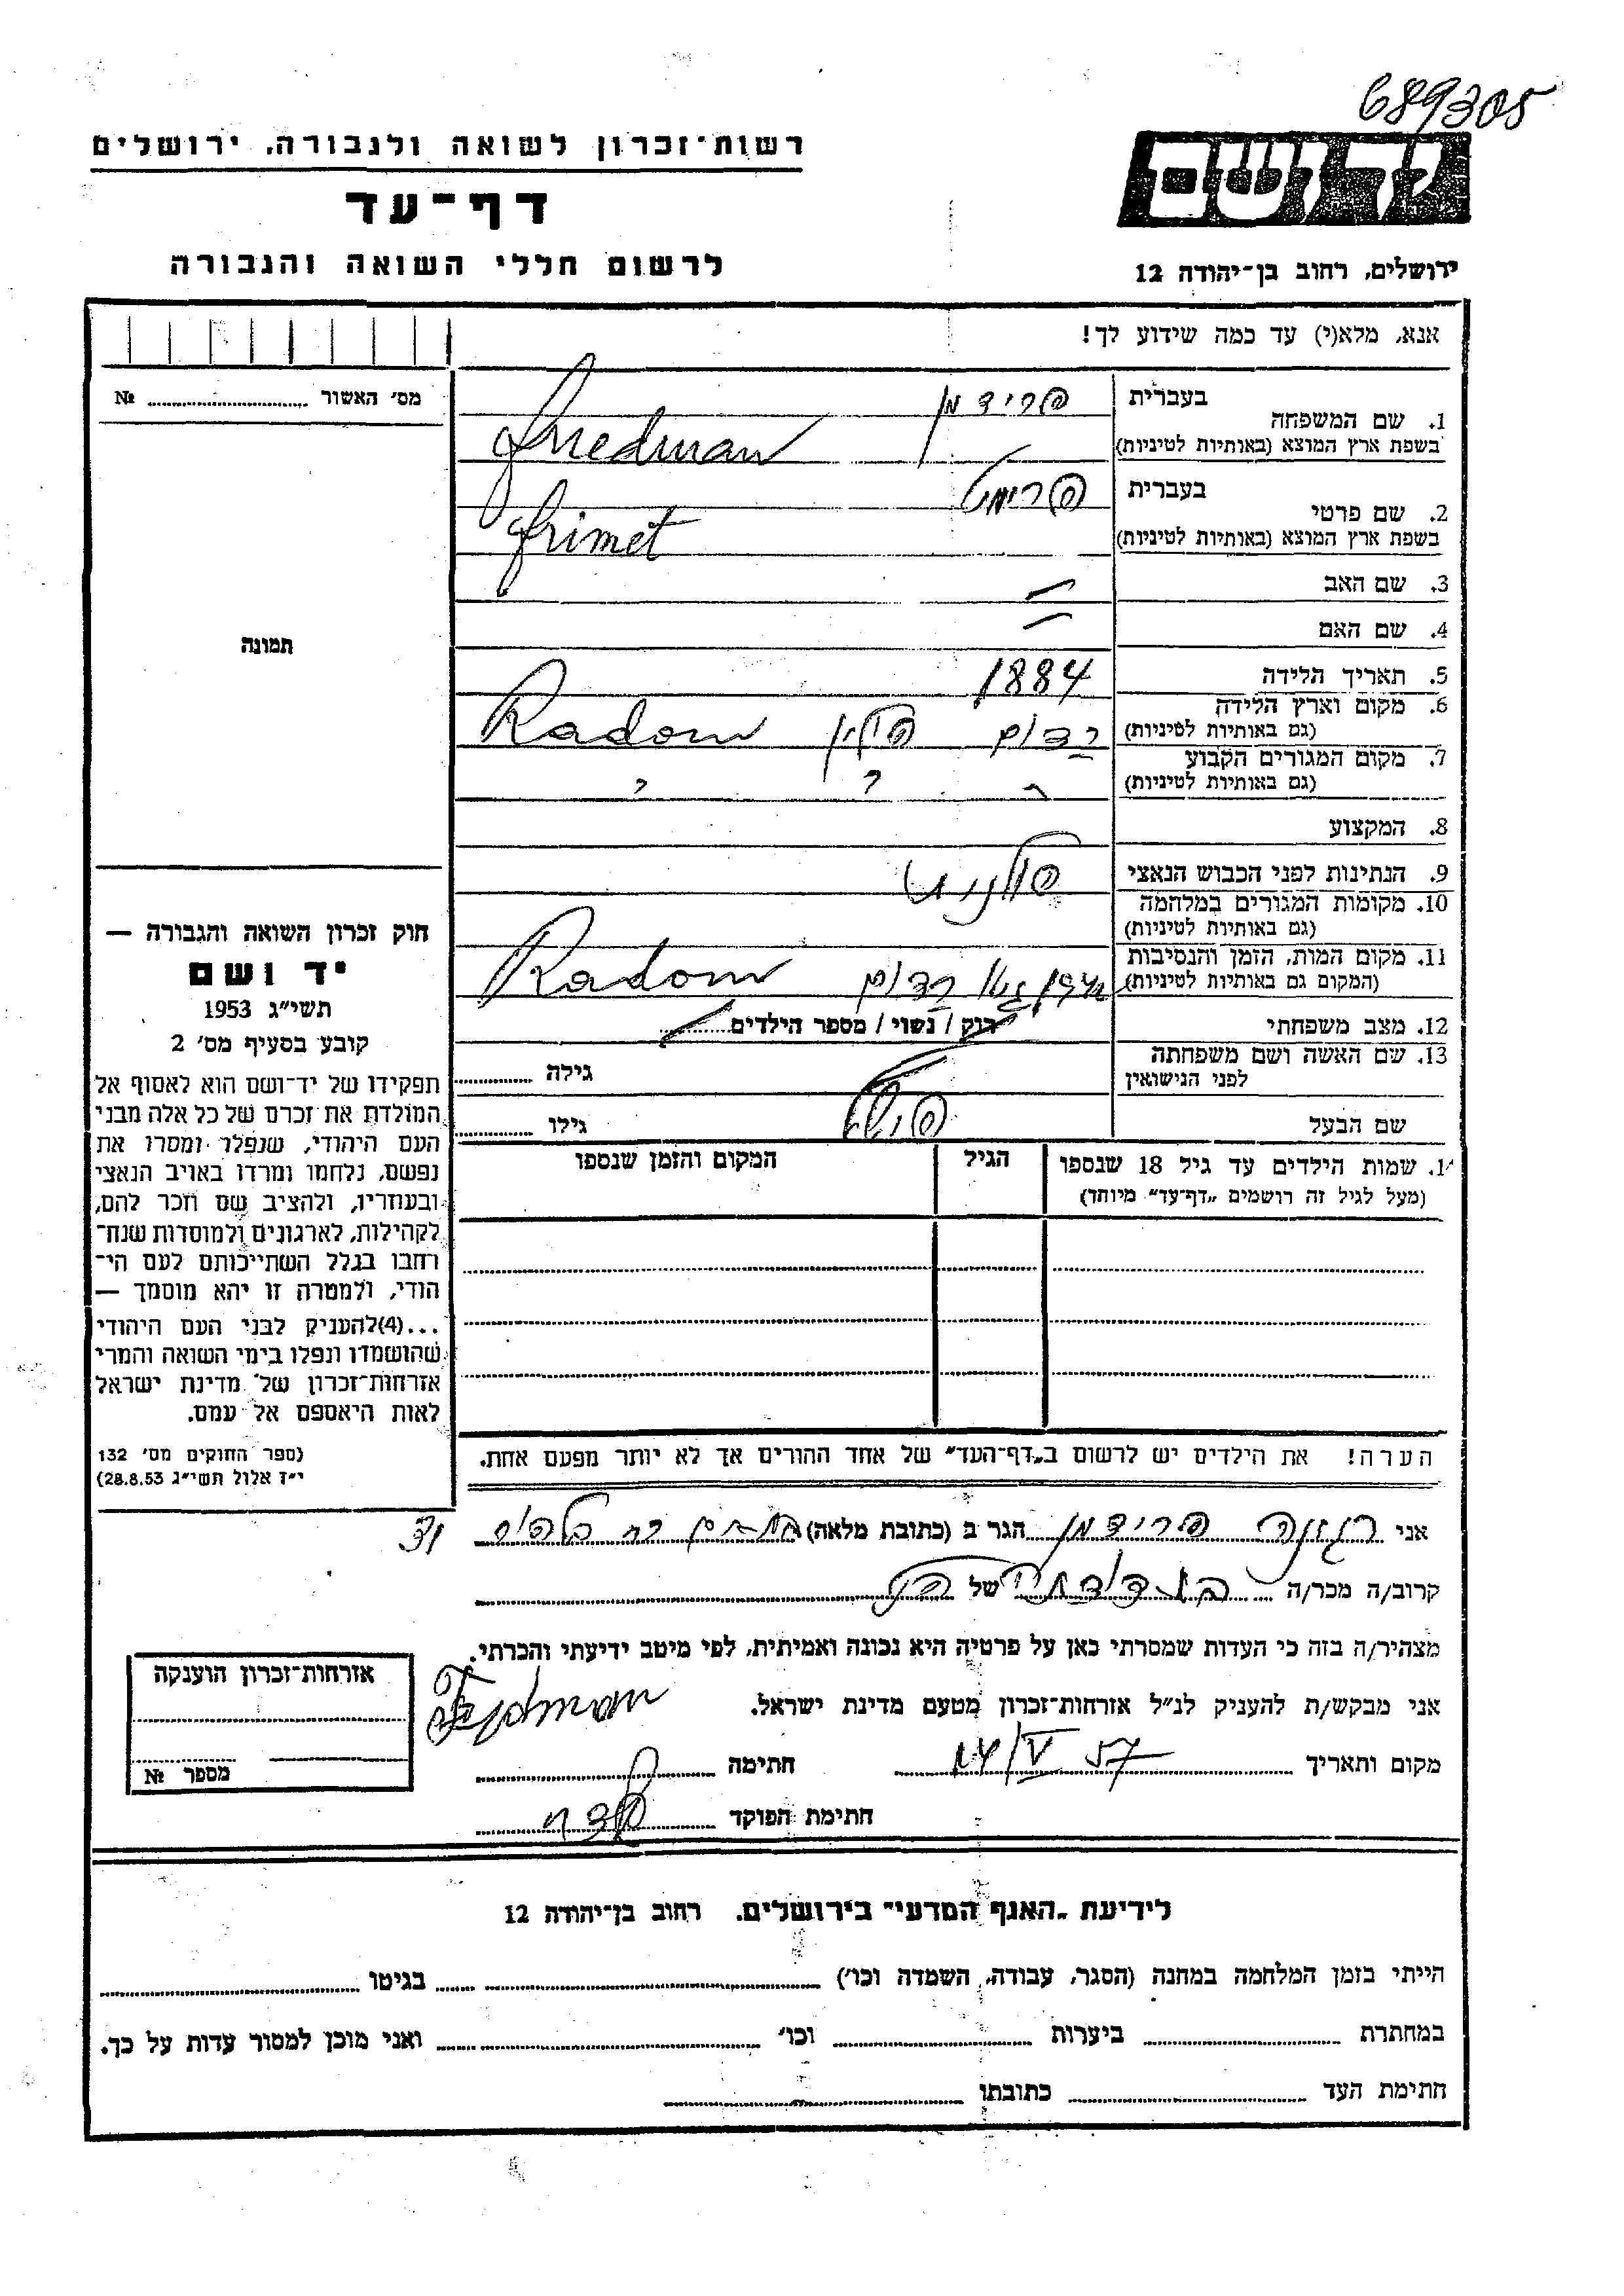 689305
רשות־זכרון לשואה ולגבורה, ירושלים
יד ושם
דף־עד
לרשום חללי השואה והגבורה
ירושלים, רחוב בן־יהודה 12
אנא, מלא(י) עד כמה שידוע לך!
מס׳ האשור № 
1. שם המשפחה בעברית פרידמן
בשפת ארץ המוצא (באותיות לטיניות) Friedman
2. שם פרטי בעברית פרימט
בשפת ארץ המוצא (באותיות לטיניות) Frimet
3. שם האב —
4. שם האם —
תמונה
5. תאריך הלידה 1884
6. מקום וארץ הלידה (גם באותיות לטיניות) רדום פולין Radom
7. מקום המגורים הקבוע (גם באותיות לטיניות) " " "
8. המקצוע
9. הנתינות לפני הכבוש הנאצי פולנית
10. מקומות המגורים במלחמה (גם באותיות לטיניות)
11. מקום המות, הזמן והנסיבות (המקום גם באותיות לטיניות) רדום Radom
12. מצב משפחתי רוק / נשוי / מספר הילדים
13. שם האשה ושם משפחתה לפני הנישואין גילה
שם הבעל גילו
14. שמות הילדים עד גיל 18 שנספו הגיל המקום והזמן שנספו
(מעל לגיל זה רושמים „דף־עד” מיוחד)
חוק זכרון השואה והגבורה —
יד ושם
תשי״ג 1953
קובע בסעיף מס׳ 2
תפקידו של יד־ושם הוא לאסוף אל
המולדת את זכרם של כל אלה מבני
העם היהודי, שנפלו ומסרו את
נפשם, נלחמו ומרדו באויב הנאצי
ובעוזריו, ולהציב שם וזכר להם,
לקהילות, לארגונים ולמוסדות שנח־
רחבו בגלל השתייכותם לעם הי־
הודי, ולמטרה זו יהא מוסמך —
...(4)להעניק לבני העם היהודי
שהושמדו ונפלו בימי השואה והמרי
אזרחות־זכרון של מדינת ישראל
לאות היאספם אל עמם.
(ספר החוקים מס׳ 132
י״ז אלול תשי״ג 28.8.53)
הערה! את הילדים יש לרשום ב„דף־העד” של אחד ההורים אך לא יותר מפעם אחת.
אני פרידמן הגר ב (כתובת מלאה)
קרוב/ה מכר/ה של
מצהיר/ה בזה כי העדות שמסרתי כאן על פרטיה היא נכונה ואמיתית, לפי מיטב ידיעתי והכרתי.
אני מבקש/ת להעניק לנ״ל אזרחות־זכרון מטעם מדינת ישראל.
מקום ותאריך 14/V 57 חתימה
חתימת הפוקד
אזרחות־זכרון הוענקה
מספר №
לידיעת „האגף המדעי” בירושלים, רחוב בן־יהודה 12
הייתי בזמן המלחמה במחנה (הסגר, עבודה, השמדה וכו׳) בגיטו
במחתרת ביערות וכו׳ ואני מוכן למסור עדות על כך.
חתימת העד כתובתו